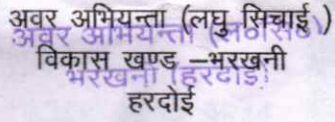 अवर अभियन्ता (लघु सिचाई )
अवर अभियन्ता (ल०सि०)
विकास खण्ड –भरखनी
भरखनी (हरदोई)
हरदोई